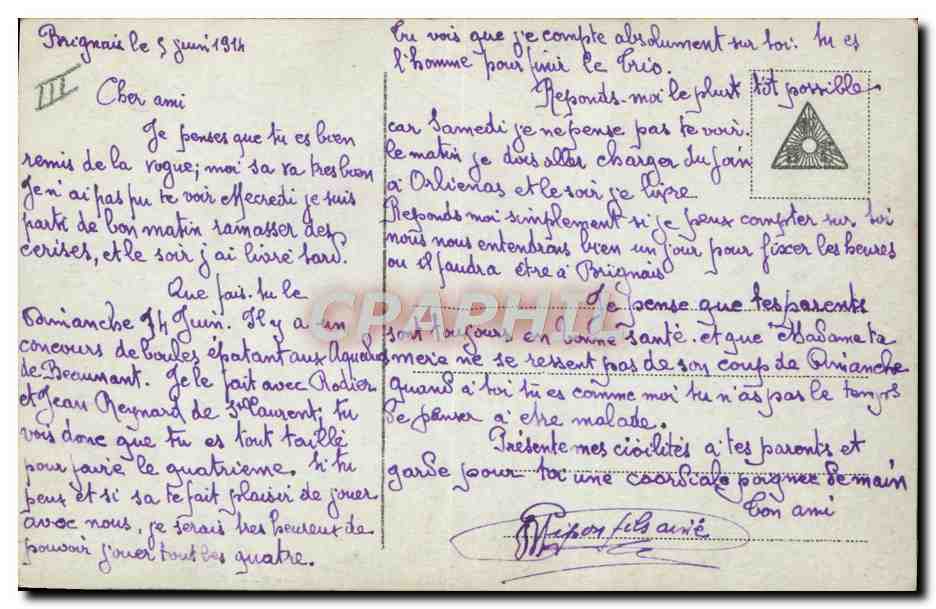 Brignais le 5 juin 1914
III
Cher ami
Je penses que tu es bien
remis de la vogue; moi sa va tres bien
Je n'ai pas pu te voir Mecredi je suis
parti de bon matin ramasser des
cerises, et le soir j'ai livré tard.
Que fais-tu le
Dimanche 14 Juin. Il y a un
concours de boules épatant aux Aqueducs
de Beaunant. Je le fait avec Rodier
et Jean Reynard de St Laurent; tu
vois donc que tu es tout taillé
pour faire le quatrieme. Si tu
peux et si sa te fait plaisir de jouer
avec nous, je serais tres heureux de
pouvoir jouer tout les quatre.
Tu vois que je compte absolument sur toi: tu es
l'homme pour finir le trio.
Reponds-moi le plus tôt possible
car Samedi je ne pense pas te voir.
le matin je dois aller charger du foin
à Orlienas et le soir je livre
Reponds moi simplement si je peux compter sur toi
nous nous entendrons bien un jour pour fixer les heures
ou il faudra être à Brignais
Je pense que tes parents
sont toujours en bonne santé et que Madame ta
mere ne se ressent pas de son coup de Dimanche
quand à toi tu es comme moi tu n'as pas le temps
de penser à etre malade.
Présente mes civilités à tes parents et
garde pour toi une cordiale poignée de main
Ton ami
fils ainé
CPARHIL